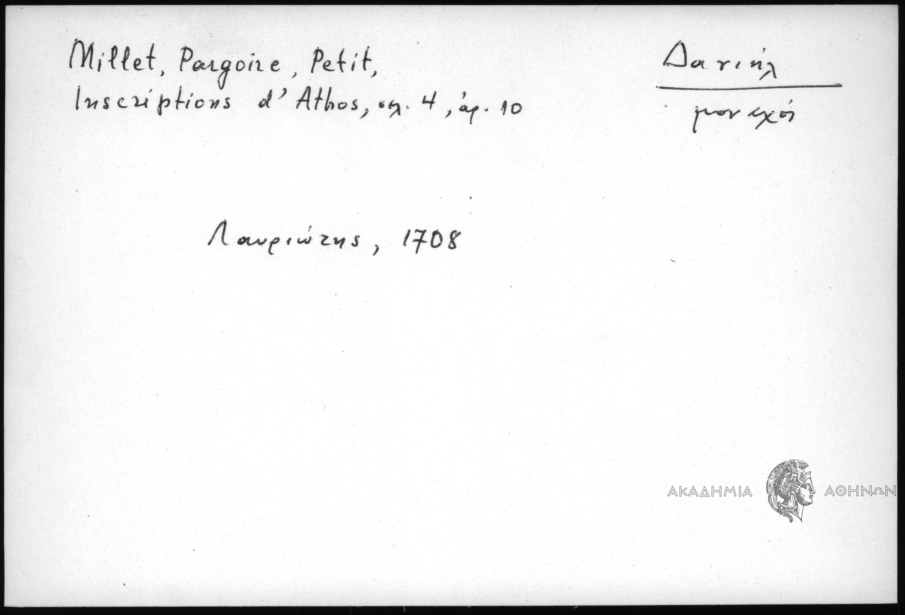 Millet, Pargoire, Petit,
Inscriptions d'Athos, σελ. 4, ἀρ. 10
Δανιήλ
μοναχός
Λαυριώτης, 1708
ΑΚΑΔΗΜΙΑ ΑΘΗΝΩΝ